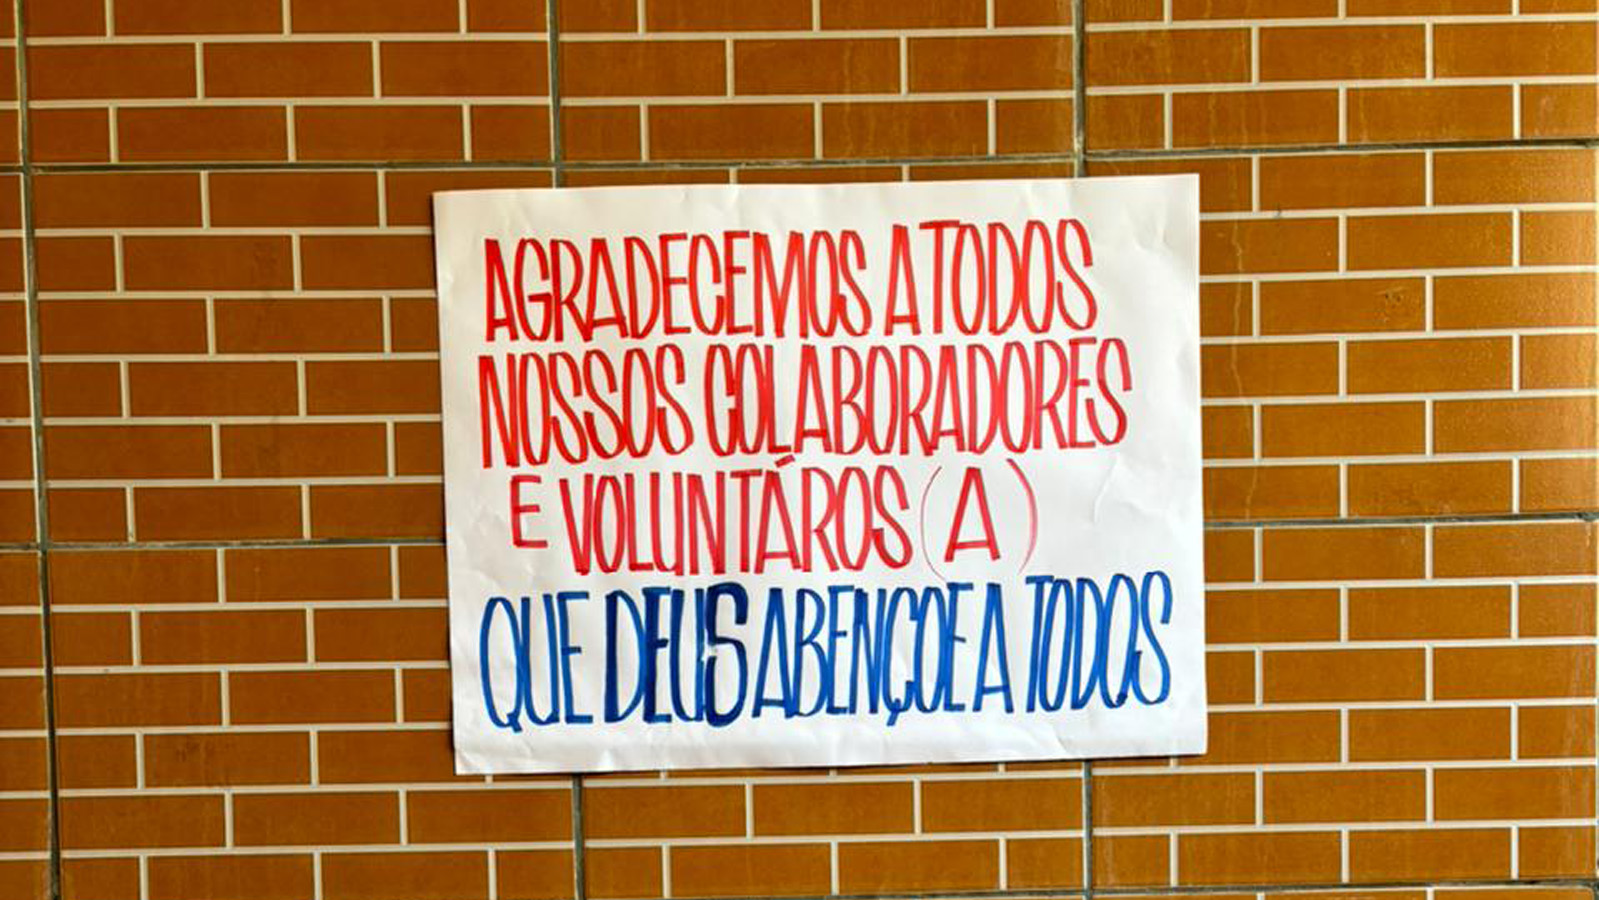 AGRADECEMOS A TODOS
NOSSOS COLABORADORES
E VOLUNTÁROS (A)
QUE DEUS ABENÇOE A TODOS